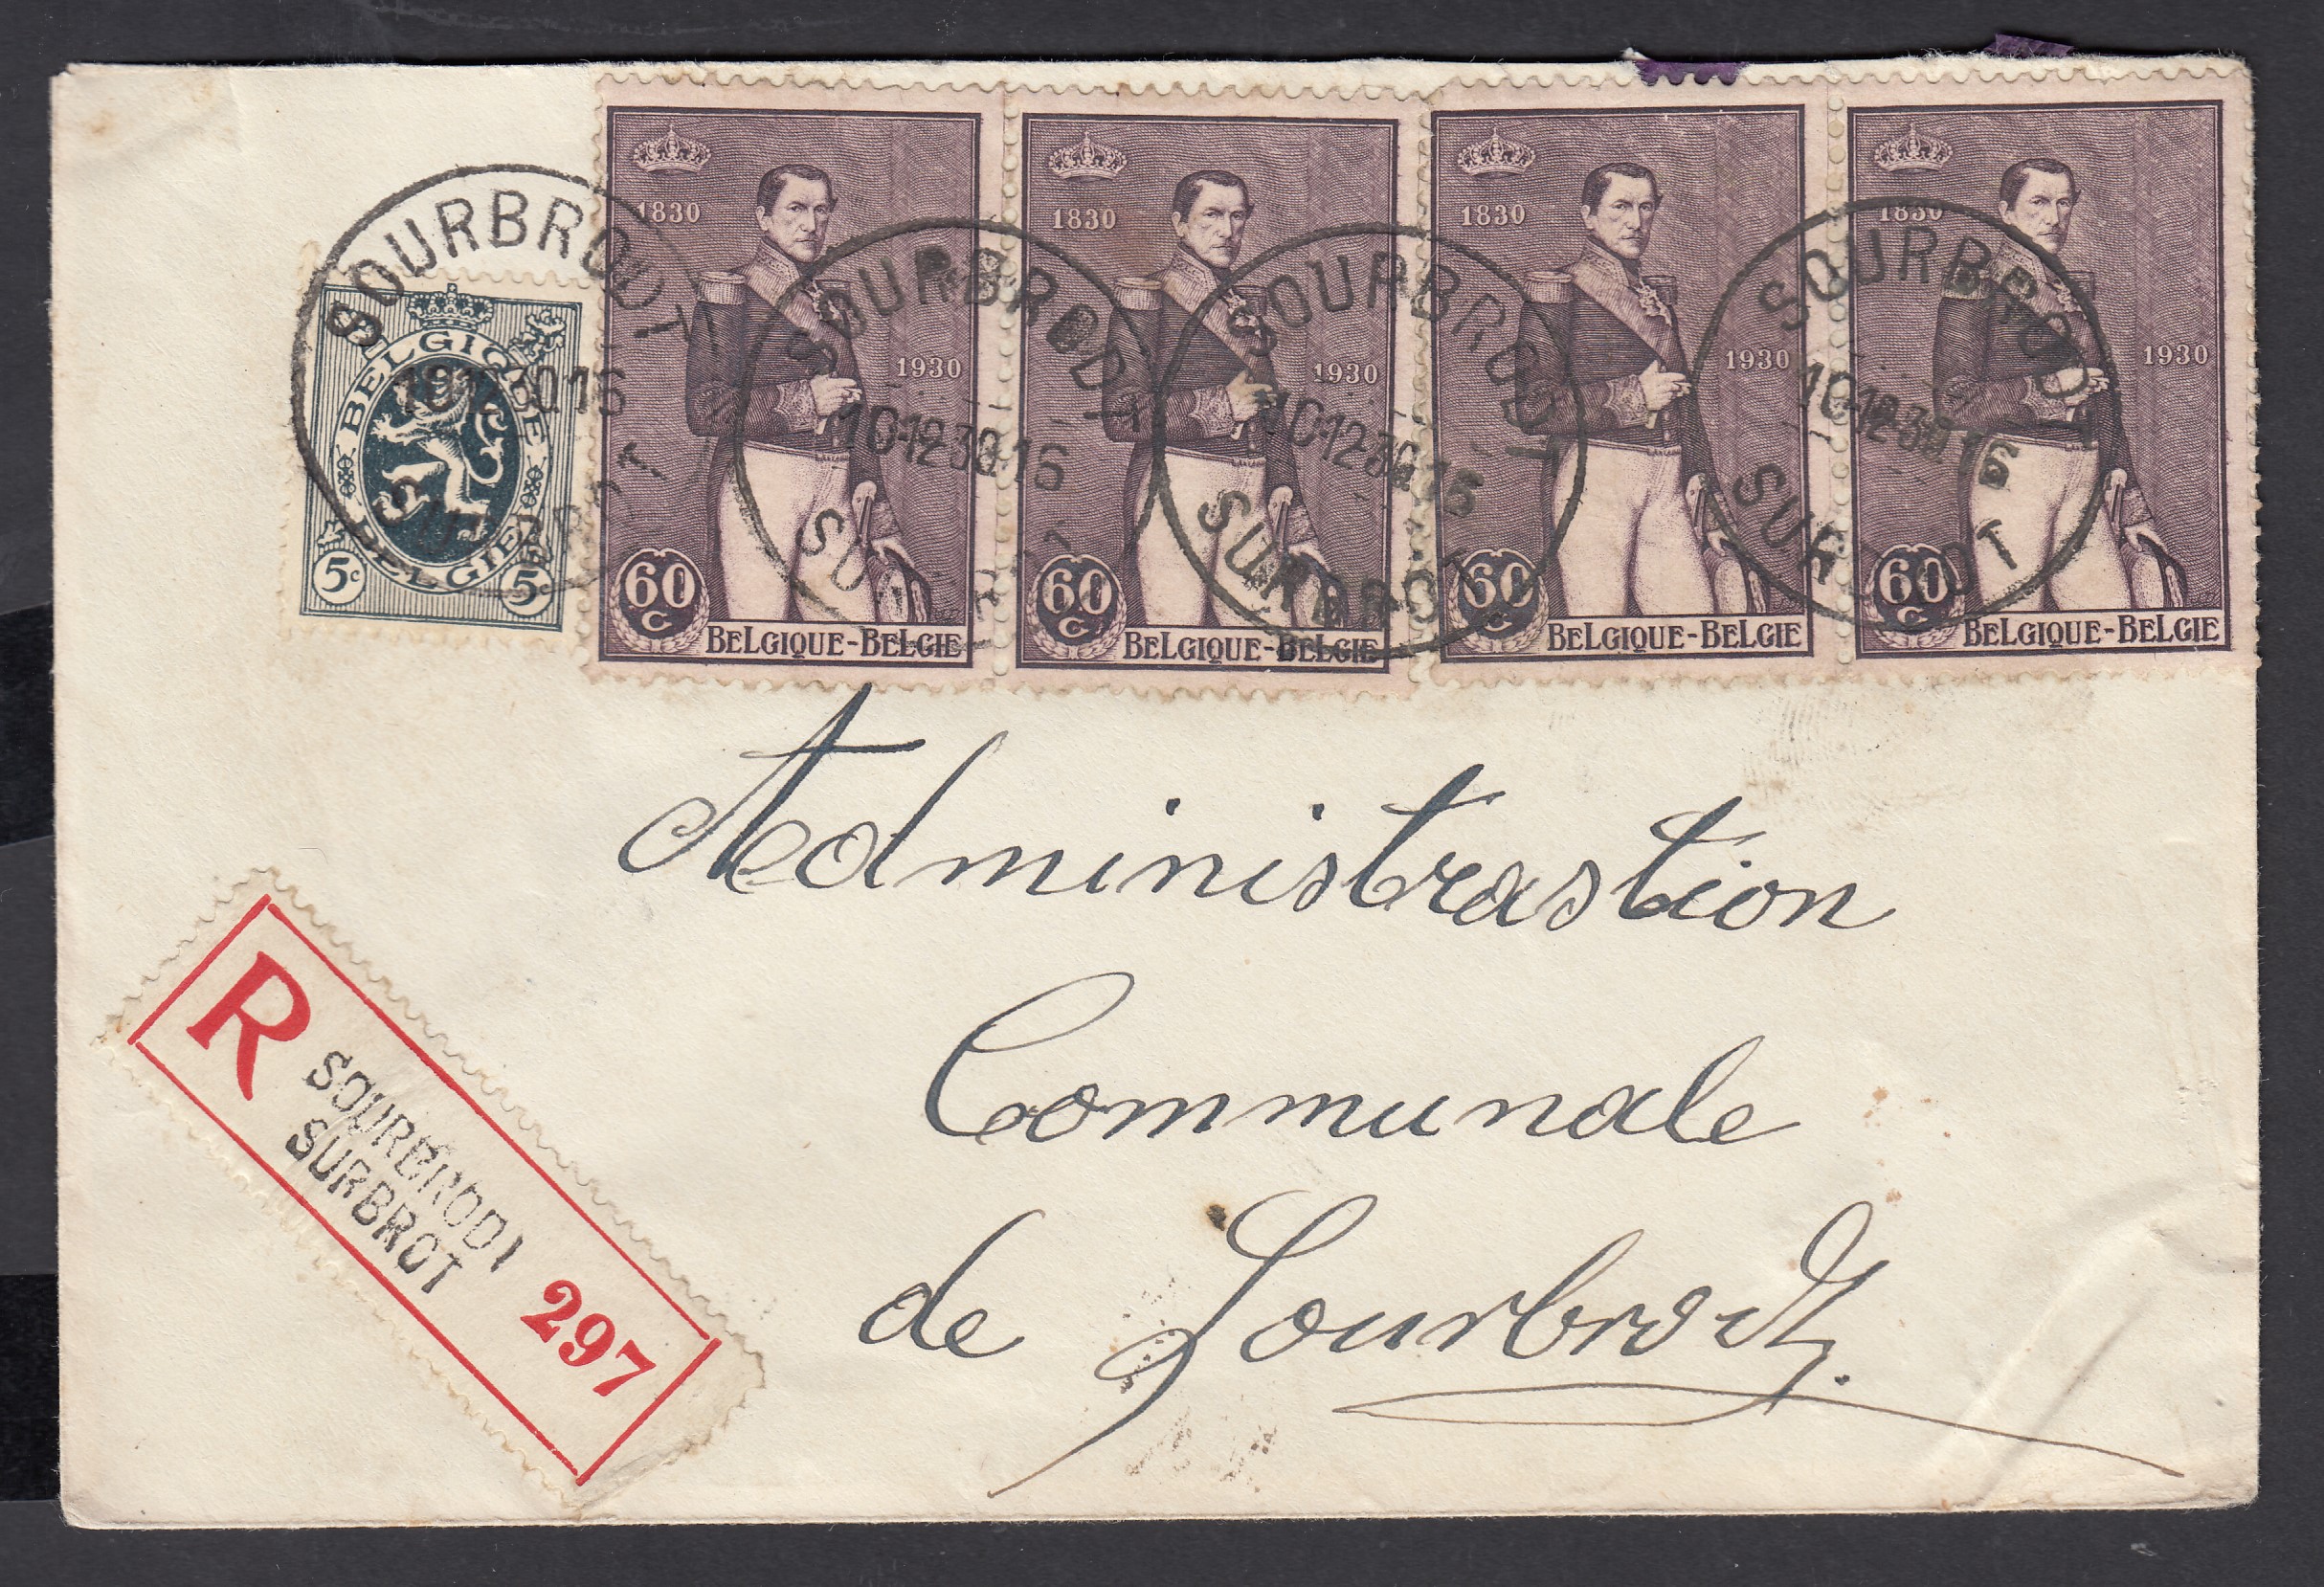 SOURBRODT
10-12-30 16
SURBROT
BELGIQUE
BELGIË
5c 5c
1830
1930
60 C
BELGIQUE-BELGIE
SOURBRODT
10-12-30 16
1830
1930
60 C
BELGIQUE-BELGIE
SOURBRODT
10-12-30 16
SURBROT
1830
1930
60 C
BELGIQUE-BELGIE
SOURBRODT
10-12-30 16
SURBROT
1830
1930
60 C
BELGIQUE-BELGIE
Administrastion
Communale
de Sourbrodt.
R
SOURBRODT
SURBROT
297